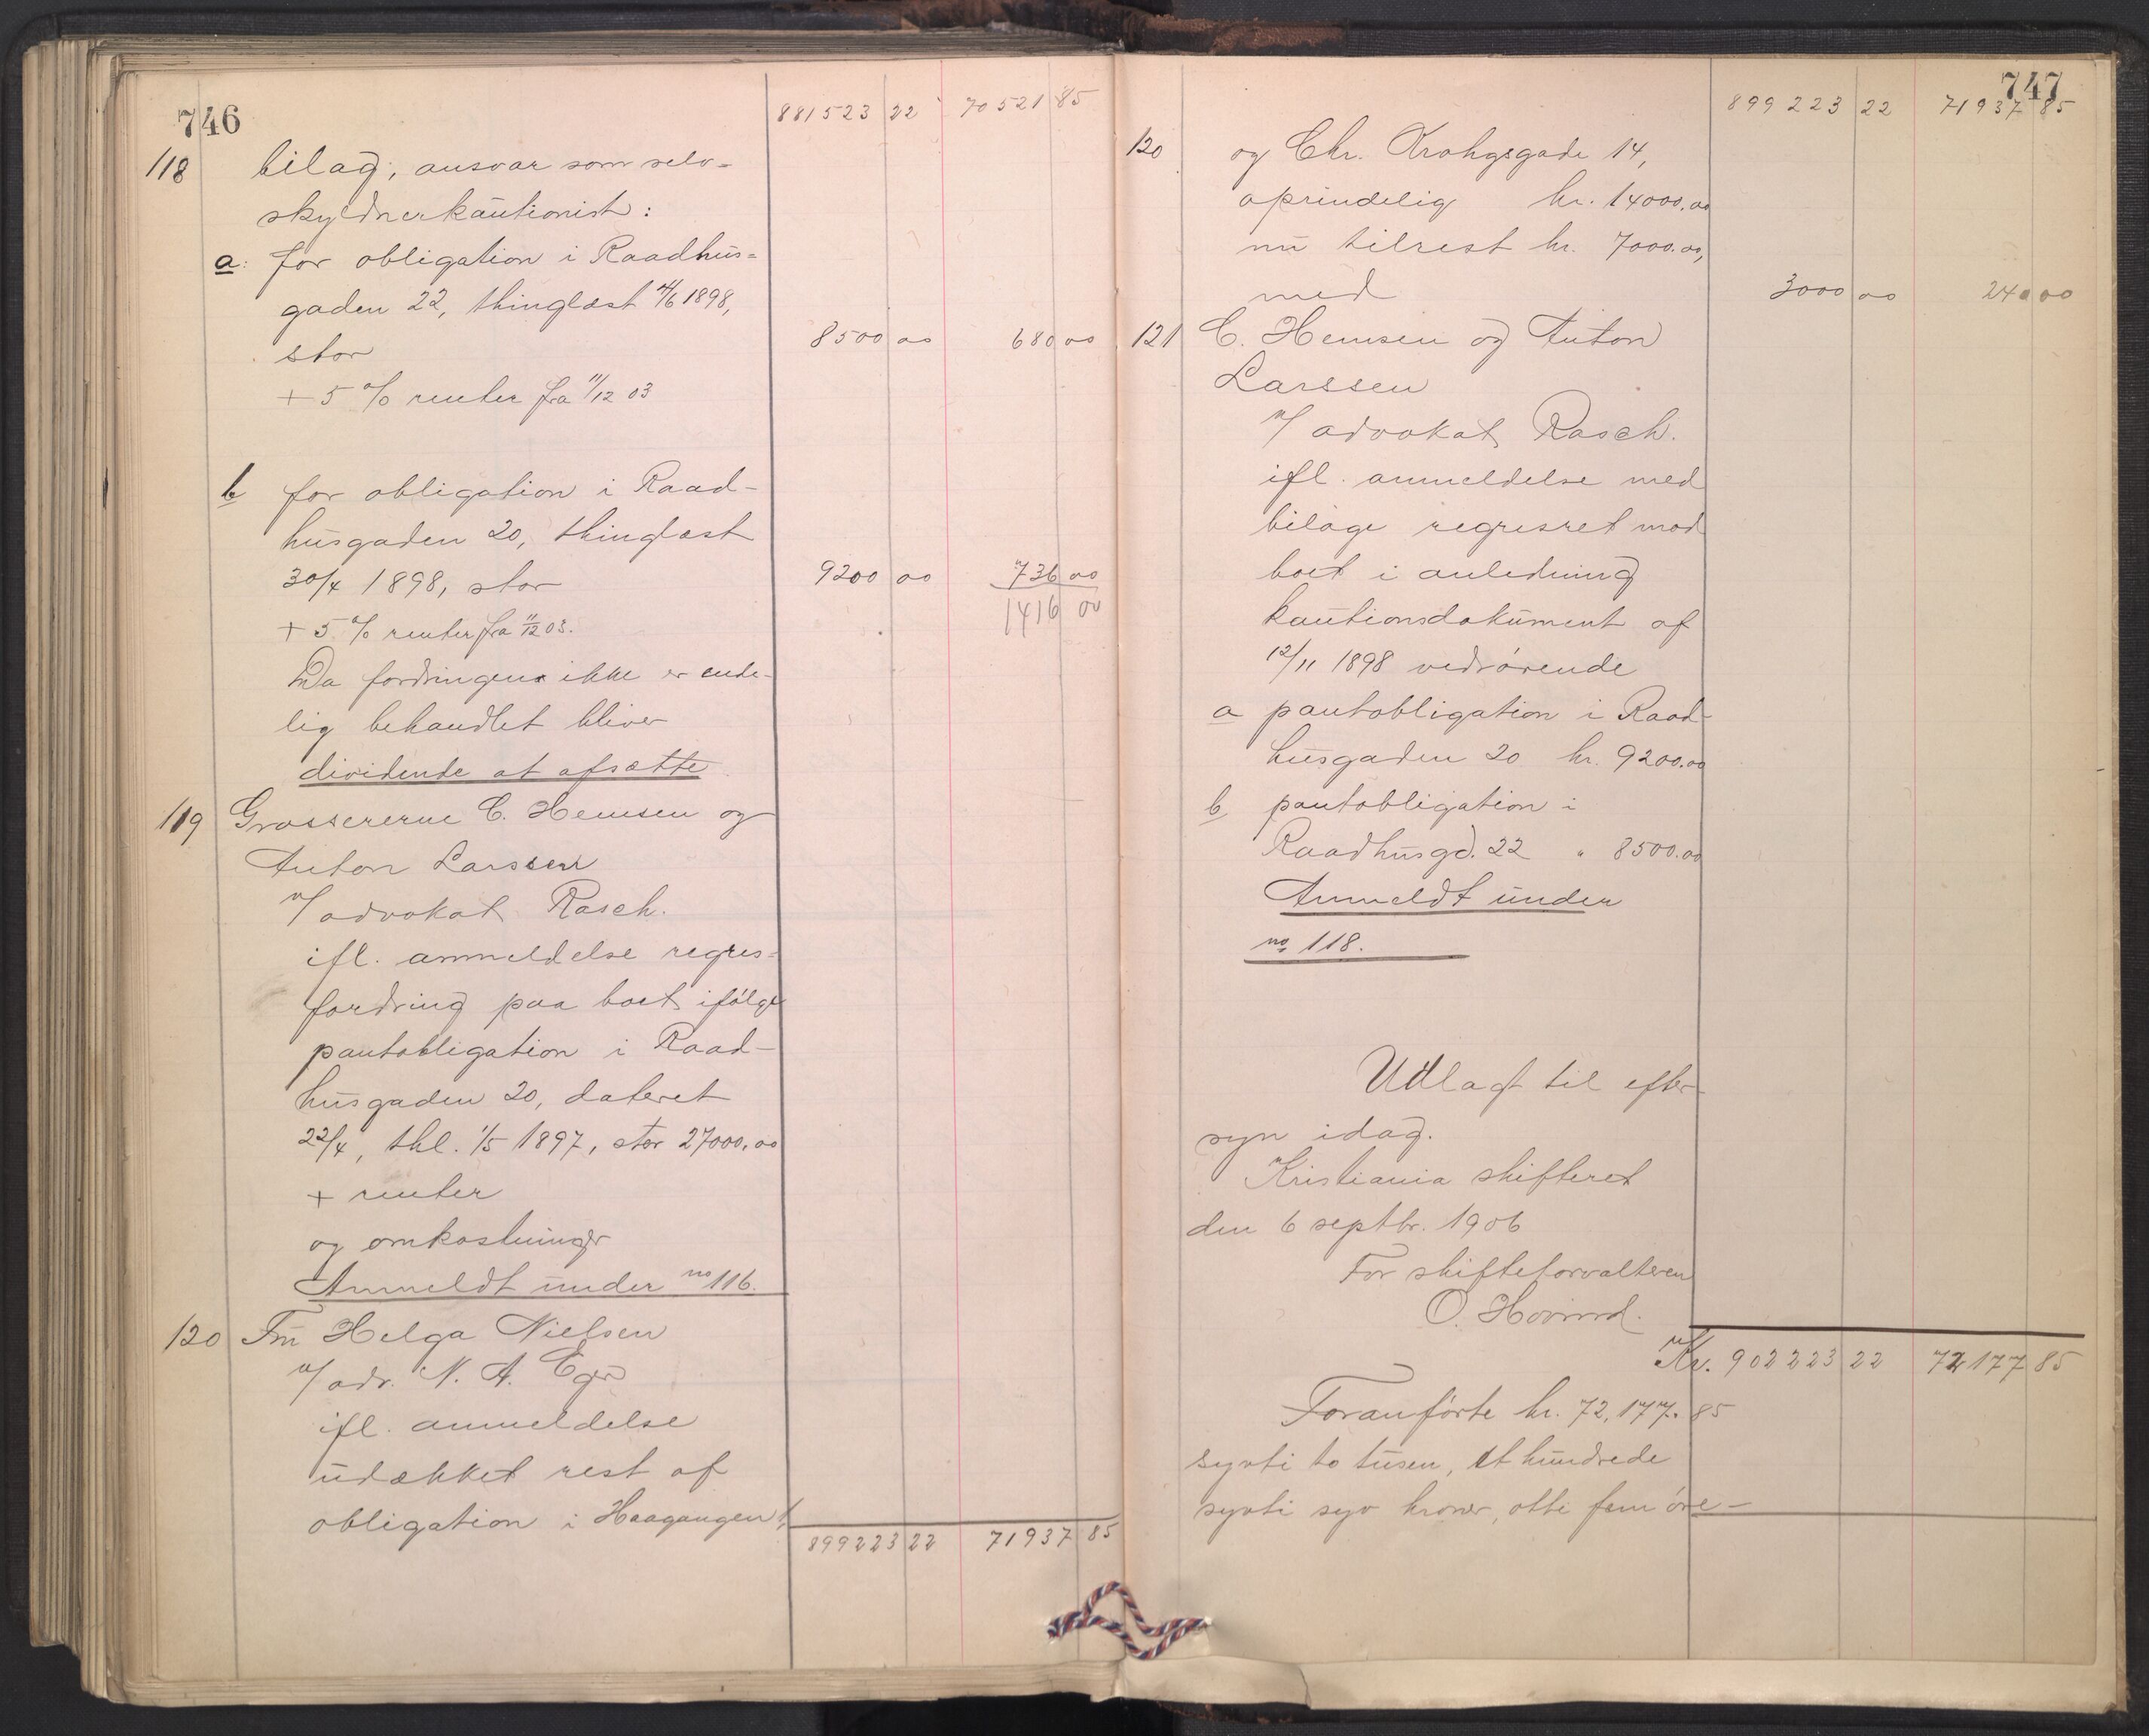 746
881523 22 70521 85
118 bilag, ansvar som selv-
skyldnerkautionist:
a: for obligation i Raadhus=
gaden 22, thinglæst 4/6 1898,
stor 8500 00 680 00
+ 5 % renter fra 11/12 03
b for obligation i Raad-
husgaden 20, thinglæst
30/4 1898, stor 9200 00 736 00
1416 00
+ 5 % renter fra 11/12 03.
Da fordringen ikke er ende-
lig behandlet bliver
dividende at afsætte
119 Grossererne C. Hemsen og
Anton Larssen
v/ advokat Rasch.
ifl. anmeldelse regres-
fordring paa boet ifölge
pantobligation i Raad-
husgaden 20, dateret
22/4, thl. 1/5 1897, stor 27000.00
+ renter
og omkostninger
Anmeldt under no 116.
120 Fru Helga Nielsen
v/ adv. N. A. Eger
ifl. anmeldelse
udækket rest af
obligation i Haagangen 1,
899223 22 71937 85
747
899223 22 71937 85
120 og Chr. Krohgsgade 14,
oprindelig kr. 14000.00
nu tilrest kr. 7000.00,
med 3000 00 240 00
121 C. Hemsen og Anton
Larssen
v/ advokat Rasch.
ifl. anmeldelse med
bilage regresret mod
boet i anledning
kautionsdokument af
12/11 1898 vedrörende
a pantobligation i Raad-
husgaden 20 kr. 9200.00
b pantobligation i
Raadhusgd. 22 " 8500.00
Anmeldt under
no 118.
Udlagt til efter-
syn idag.
Kristiania skifteret
den 6 septbr. 1906
For skifteforvalteren
O.
Kr. 902223 22 72177 85
Foranförte kr. 72,177.85
sytti to tusen, et hundrede
sytti syv kroner, otti fem öre —